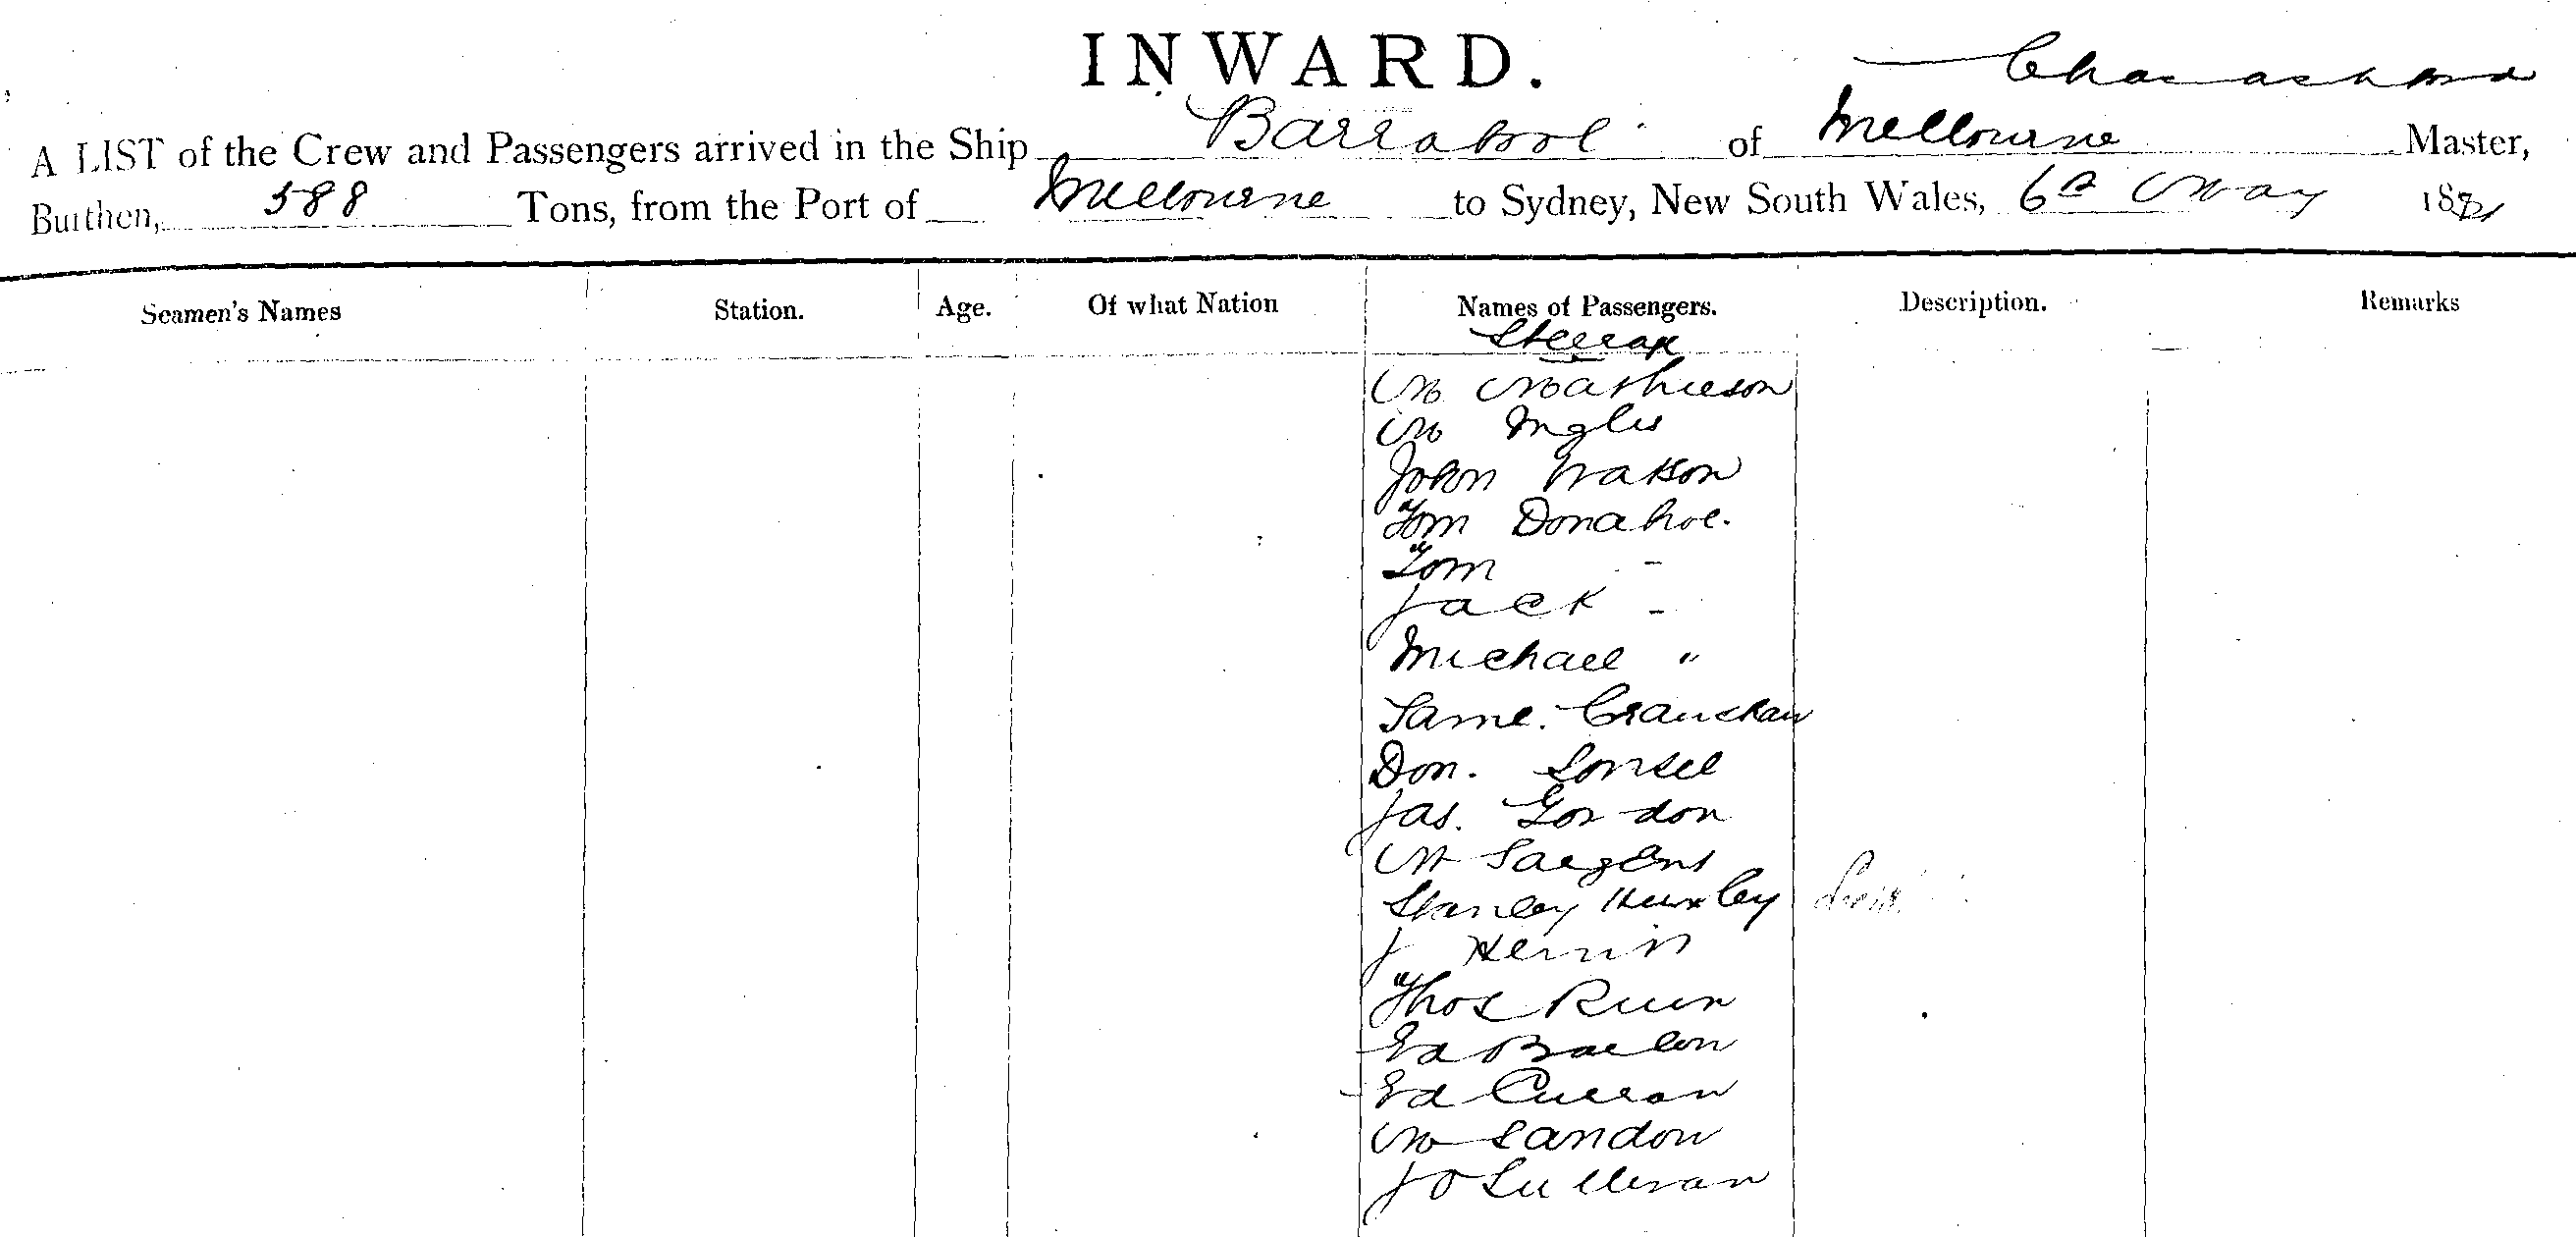 INWARD.
A LIST of the Crew and Passengers arrived in the Ship Barrabool of Melbourne Master,
Burthen, 588 Tons, from the Port of Melbourne to Sydney, New South Wales, 6th May 187
Seamen's Names Station. Age. Of what Nation Names of Passengers. Description. Remarks
Steerage
Mr Mathieson
Mr Inglis
John Watson
Tom Donahoe.
Tom -
Jack -
Michael "
Don.
Jas. Gordon
Mr Sargent
Stanley Huxley
J
Thos
Ed
Ed Curran
Mr Landon
J O Sullivan